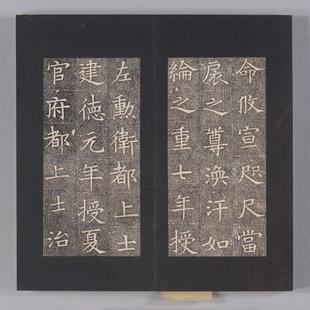 命攸宣咫尺當
扆之尊渙汗如
綸之重七年授
左勳衛都上士
建德元年授夏
官府都上士治